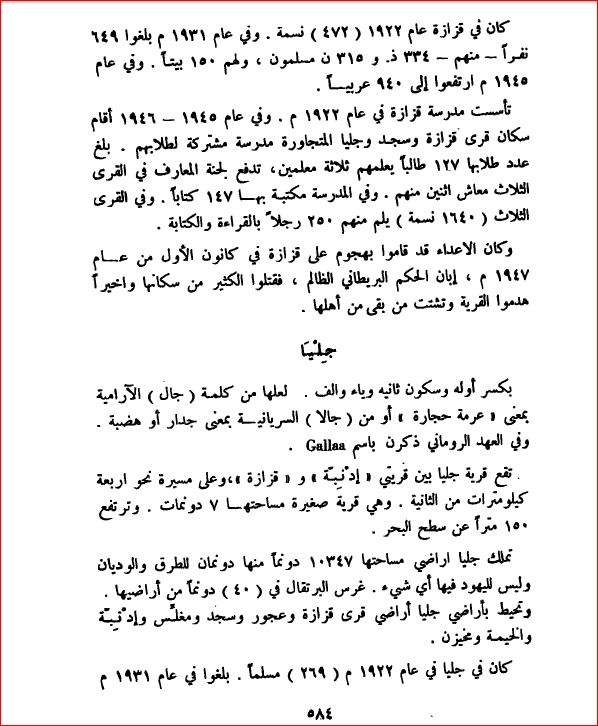 كان في قزازة عام ١٩٢٢ ( ٤٧٢ ) نسمة . وفي عام ١٩٣١ م بلغوا ٦٤٩
نفراً – منهم – ٣٣٤ ذ. و ٣١٥ ن مسلمون ، ولهم ١٥٠ بيتاً . وفي عام
١٩٤٥ م ارتفعوا إلى ٩٤٠ عربياً .
تأسست مدرسة قزازة في عام ١٩٢٢ م . وفي عام ١٩٤٥ – ١٩٤٦ أقام
سكان قرى قزازة وسجد وجليا المتجاورة مدرسة مشتركة لطلابهم . بلغ
عدد طلابها ١٢٧ طالباً يعلمهم ثلاثة معلمين، تدفع لجنة المعارف في القرى
الثلاث معاش اثنين منهم . وفي المدرسة مكتبة بها ١٤٧ كتاباً . وفي القرى
الثلاث ( ١٦٤٠ نسمة ) يلم منهم ٢٥٠ رجلاً بالقراءة والكتابة .
وكان الاعداء قد قاموا بهجوم على قزازة في كانون الأول من عام
١٩٤٧ م ، إبان الحكم البريطاني الظالم ، فقتلوا الكثير من سكانها واخيراً
هدموا القرية وتشتت من بقى من أهلها .
جِلْيَا
بكسر أوله وسكون ثانيه وياء والف . لعلها من كلمة ( جال ) الآرامية
بمعنى « عرمة حجارة » أو من ( جالا ) السريانية بمعنى جدار أو هضبة .
وفي العهد الروماني ذكرن باسم Gallaa .
تقع قرية جليا بين قريتي « إدْنِبّة » و « قزازة »،وعلى مسيرة نحو اربعة
كيلومترات من الثانية . وهي قرية صغيرة مساحتها ٧ دونمات . وترتفع
١٥٠ متراً عن سطح البحر .
تملك جليا اراضي مساحتها ١٠٣٤٧ دونماً منها دونمان للطرق والوديان
وليس لليهود فيها أي شيء . غرس البرتقال في ( ٤٠ ) دونماً من أراضيها .
وتحيط بأراضي جليا أراضي قرى قزازة وعجور وسجد ومغلّس وإدْنِبّة
والخيمة ومخيزن .
كان في جليا في عام ١٩٢٢ م ( ٢٦٩ ) مسلماً . بلغوا في عام ١٩٣١ م
٥٨٤